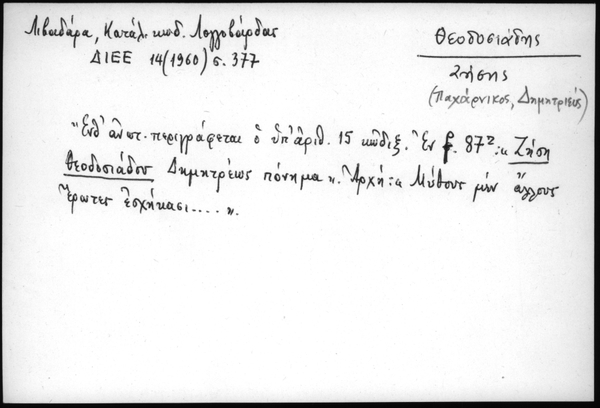 Λιβαδάρα, Κατάλ. κωδ. Λογγοβάρδας
ΔΙΕΕ 14 (1960) σ. 377
Θεοδοσιάδης
Ζήσης
(Παχάρνικος, Δημητριεύς)
"Ἐνθ' ἀν. περιγράφεται ὁ ὑπ' ἀριθ. 15 κῶδιξ. Ἐν f. 87²: « Ζήση
Θεοδοσιάδου Δημητρέως πόνημα ». Ἀρχή: « Μύθους μὲν ἄλλους
Ἔρωτες ἐσχήκασι..... ».